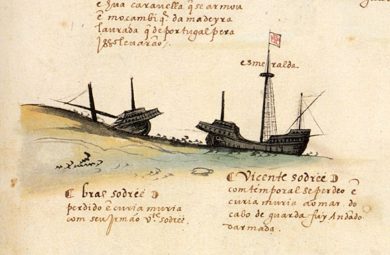 e hũa caravella q̃ se armou
e moçambiq̃ da madeyra
laurada q̃ de portugal pera
isso levarão
esmeralda
bras sodree
perdido ẽ curia muria
com seu Irmão vte sodree.
Vicente sodree
com temporal se perdeo ẽ
curia muria aomar. do
cabo de guarda fuy Andãdo
darmada.